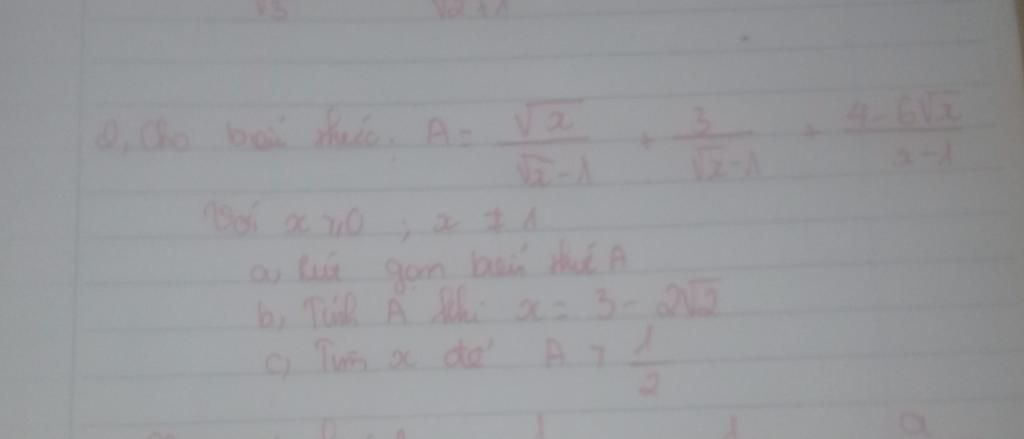 2, Cho biểu thức. A = √x / (√x - 1) + 3 / (√x - 1) + (4 - 6√x) / (x - 1)
Với x ≥ 0 ; x ≠ 1
a, Rút gọn biểu thức A
b, Tính A khi x = 3 - 2√2
c, Tìm x để A > 1/2